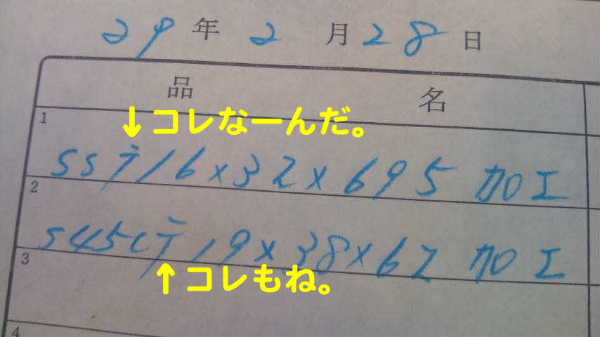 29年2月28日
品名
1
↓コレなーんだ。
SS 16×32×695 加工
2
S45C 19×38×62 加工
3
↑コレもね。
4